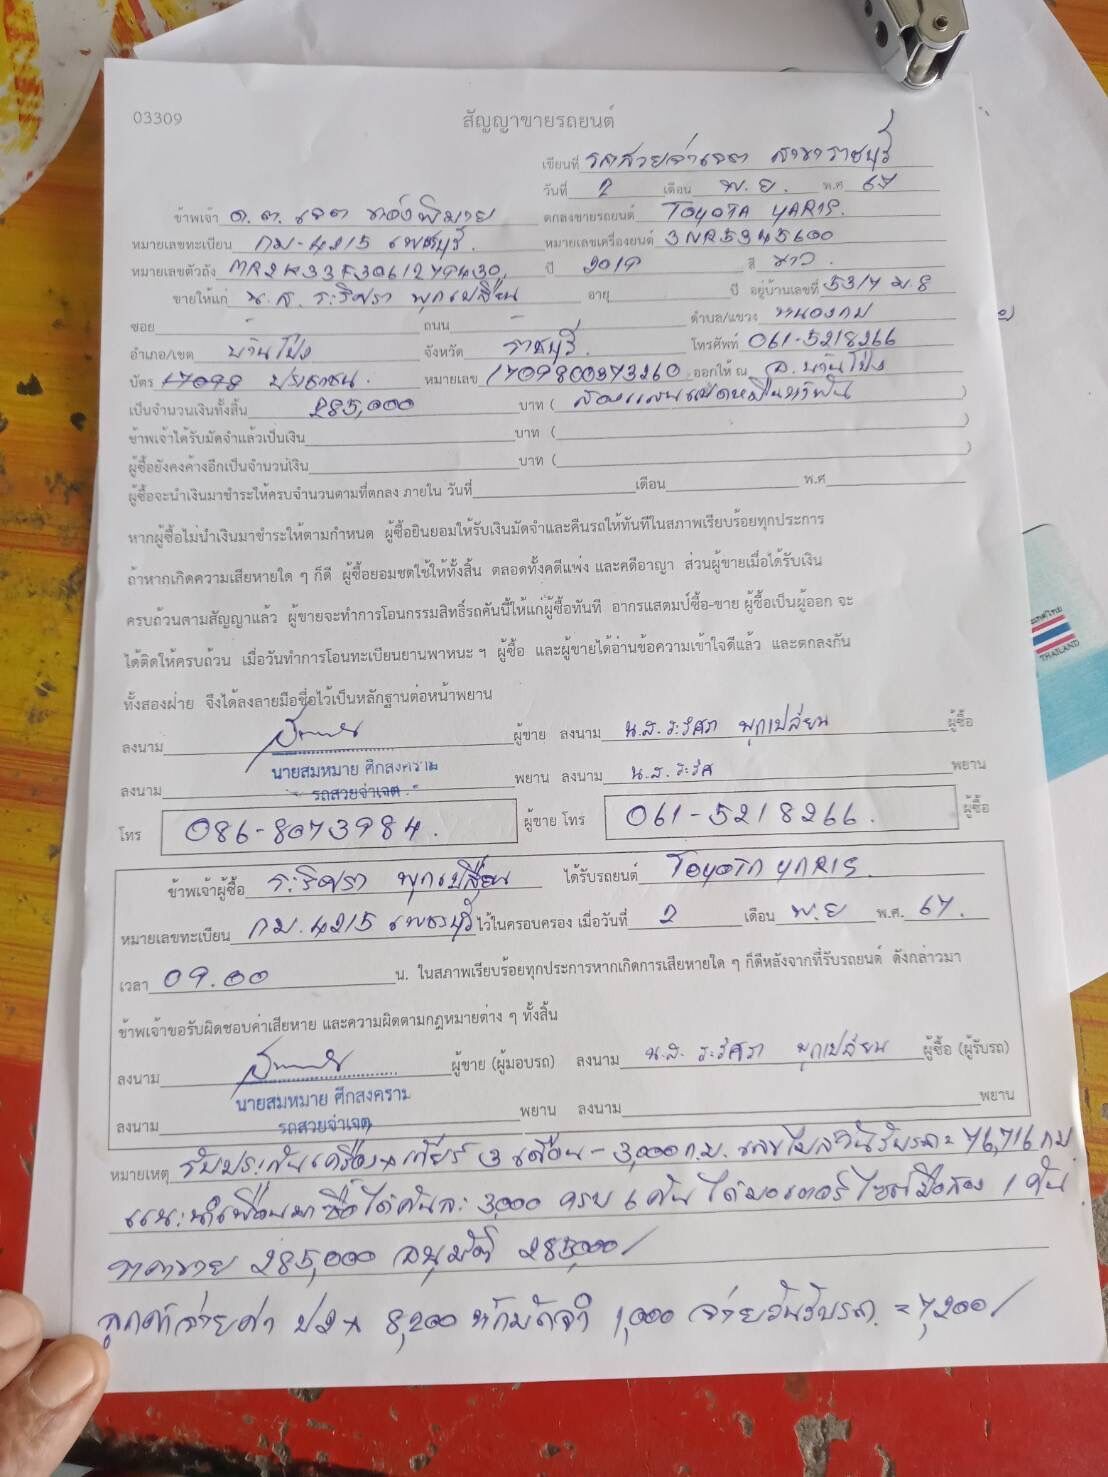 03309
สัญญาขายรถยนต์
เขียนที่ รถสวยจ่าเจต สาขาราชบุรี
วันที่ 2 เดือน พ.ย. พ.ศ 67
ข้าพเจ้า ด.ต. เจต ตกลงขายรถยนต์ TOYOTA YARIS.
หมายเลขทะเบียน กม-4215 เพชรบุรี. หมายเลขเครื่องยนต์ 3NR5345600
หมายเลขตัวถัง ปี 2019 สี ขาว.
ขายให้แก่ น.ส. พุกเปลี่ยน อายุ ปี อยู่บ้านเลขที่ 53/7 ม.8
ซอย ถนน ตำบล/แขวง หนองกบ
อำเภอ/เขต บ้านโป่ง จังหวัด ราชบุรี. โทรศัพท์ 061-5218266
บัตร ประชาชน. หมายเลข 1709800373260 ออกให้ ณ อ.บ้านโป่ง
เป็นจำนวนเงินทั้งสิ้น 285,000 บาท ( สองแสนแปดหมื่นห้าพัน )
ข้าพเจ้าได้รับมัดจำแล้วเป็นเงิน บาท ( )
ผู้ซื้อยังคงค้างอีกเป็นจำนวนเงิน บาท ( )
ผู้ซื้อจะนำเงินมาชำระให้ครบจำนวนตามที่ตกลง ภายใน วันที่ เดือน พ.ศ
หากผู้ซื้อไม่นำเงินมาชำระให้ตามกำหนด ผู้ซื้อยินยอมให้รับเงินมัดจำและคืนรถให้ทันทีในสภาพเรียบร้อยทุกประการ
ถ้าหากเกิดความเสียหายใด ๆ ก็ดี ผู้ซื้อยอมชดใช้ให้ทั้งสิ้น ตลอดทั้งคดีแพ่ง และคดีอาญา ส่วนผู้ขายเมื่อได้รับเงิน
ครบถ้วนตามสัญญาแล้ว ผู้ขายจะทำการโอนกรรมสิทธิ์รถคันนี้ให้แก่ผู้ซื้อทันที อากรแสตมป์ซื้อ-ขาย ผู้ซื้อเป็นผู้ออก จะ
ได้ติดให้ครบถ้วน เมื่อวันทำการโอนทะเบียนยานพาหนะ ฯ ผู้ซื้อ และผู้ขายได้อ่านข้อความเข้าใจดีแล้ว และตกลงกัน
ทั้งสองฝ่าย จึงได้ลงลายมือชื่อไว้เป็นหลักฐานต่อหน้าพยาน
ลงนาม ผู้ขาย ลงนาม น.ส. พุกเปลี่ยน ผู้ซื้อ
นายสมหมาย ศึกสงคราม
ลงนาม รถสวยจ่าเจต พยาน ลงนาม น.ส. พยาน
โทร 086-8073984. ผู้ขาย โทร 061-5218266. ผู้ซื้อ
ข้าพเจ้าผู้ซื้อ พุกเปลี่ยน ได้รับรถยนต์ TOYOTA YARIS.
หมายเลขทะเบียน กม.4215 เพชรบุรี ไว้ในครอบครอง เมื่อวันที่ 2 เดือน พ.ย พ.ศ. 67.
เวลา 09.00 น. ในสภาพเรียบร้อยทุกประการหากเกิดการเสียหายใด ๆ ก็ดีหลังจากที่รับรถยนต์ ดังกล่าวมา
ข้าพเจ้าขอรับผิดชอบค่าเสียหาย และความผิดตามกฎหมายต่าง ๆ ทั้งสิ้น
ลงนาม ผู้ขาย (ผู้มอบรถ) ลงนาม น.ส. พุกเปลี่ยน ผู้ซื้อ (ผู้รับรถ)
นายสมหมาย ศึกสงคราม
ลงนาม รถสวยจ่าเจต พยาน ลงนาม พยาน
หมายเหตุ รับประกันเครื่อง+เกียร์ 3 เดือน - 3,000 ก.ม. เลขไมล์วันรับรถ = 76,716 กม.
แนะนำเพื่อนมาซื้อได้คันละ 3,000 ครบ 6 คัน ได้มอเตอร์ไซค์มือสอง 1 คัน
ราคาขาย 285,000 อนุมัติ 285,000/
ลูกค้าจ่ายค่า ป2+ 8,200 หักมัดจำ 1,000 จ่ายวันรับรถ = 7,200/
THAILAND